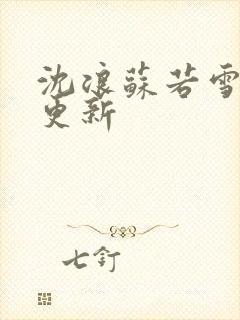 沈浪蘇若雪
更新
七釘